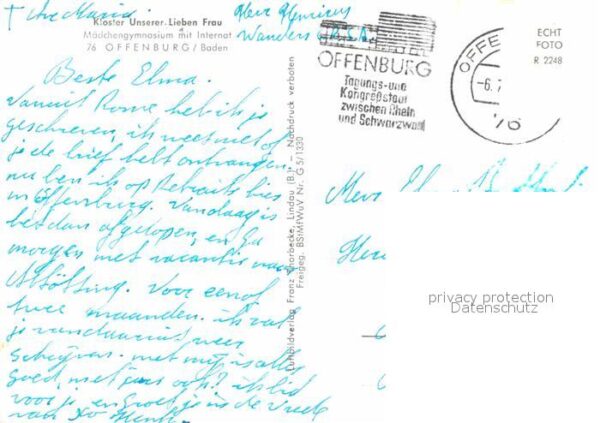 + Ave Maria.
Kloster Unserer Lieben Frau
Mädchengymnasium mit Internat
76 OFFENBURG / Baden
OFFENBURG
Tagungs- und
Kongreßstadt
zwischen Rhein
und Schwarzwald
OFFE
-6.
76
ECHT
FOTO
R 2248
Beste Elma.
Vanuit Rome heb ik je
geschreven, ik weet niet of
je de brief hebt ontvangen.
nu ben ik op Retraite hier
in Offenburg. Vandaag is
het dan afgelopen, en ga
morgen met vacantie naar
Altötting. Voor een of
twee maanden. ik zal
je vandaaruit weer
schrijven. met mij is alles
goed, met jou ook? ik bid
voor je, en groet je in de Vrede
van
Luftbildverlag Franz Thorbecke, Lindau (B.) — Nachdruck verboten
Freigeg. BStMfWuV Nr. G 5/1330
privacy protection
Datenschutz